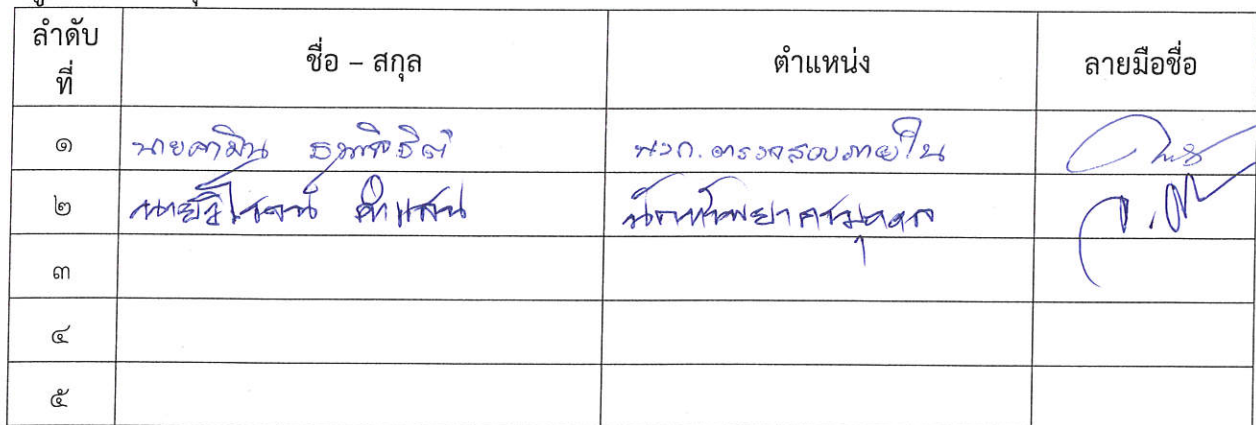 ลำดับ
ที่
ชื่อ – สกุล
ตำแหน่ง
ลายมือชื่อ
๑ นายคามิน นวก.ตรวจสอบภายใน
๒ นายวิโรจน์ คำแสน นักทรัพยากรบุคคล
๓
๔
๕